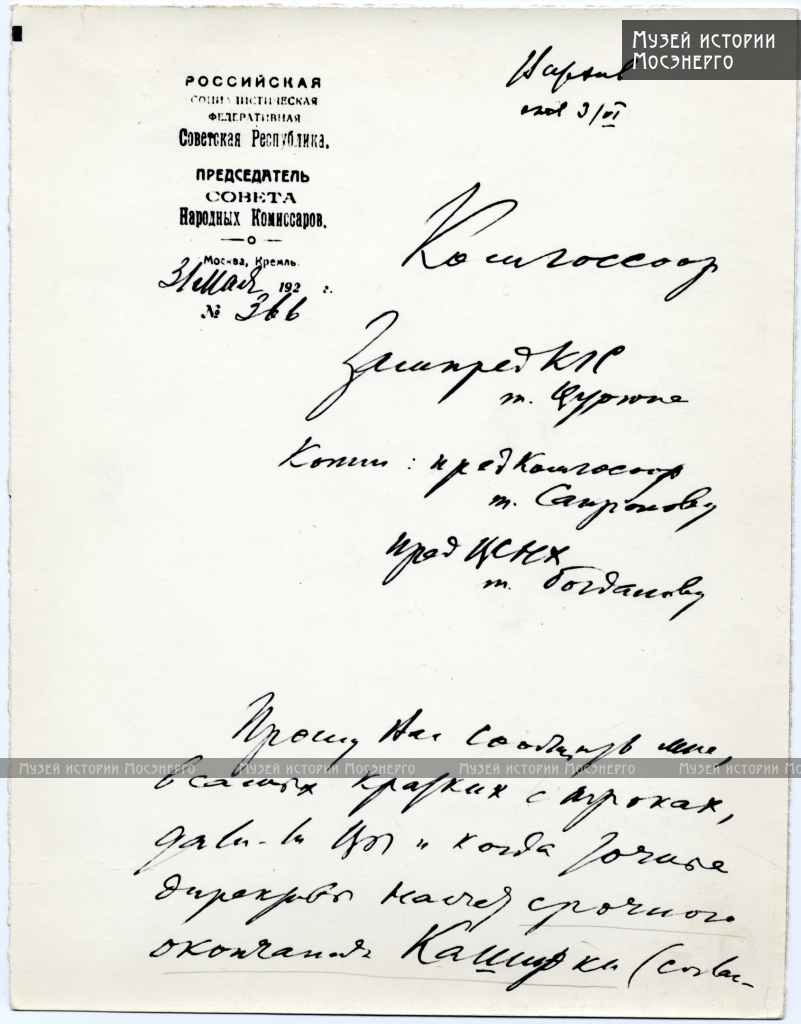 Музей истории
Мосэнерго
РОССИЙСКАЯ
СОЦИАЛИСТИЧЕСКАЯ
ФЕДЕРАТИВНАЯ
Советская Республика.
ПРЕДСЕДАТЕЛЬ
СОВЕТА
Народных Комиссаров.
Москва, Кремль.
31 мая 192 г.
№ 366
3/VI
Комгоссоор
Зампред КТС
т. Цурюпе
Копии: пред Комгоссоор
т. Сапронову
пред ЦСНХ
т. Богданову
Прошу Вас сообщить мне,
Музей истории Мосэнерго Музей истории Мосэнерго Музей истории Мосэнерго Музей истории Мос
в самых кратких строках,
дали-ли Вы и когда точные
директивы насчет срочного
окончания Каширки